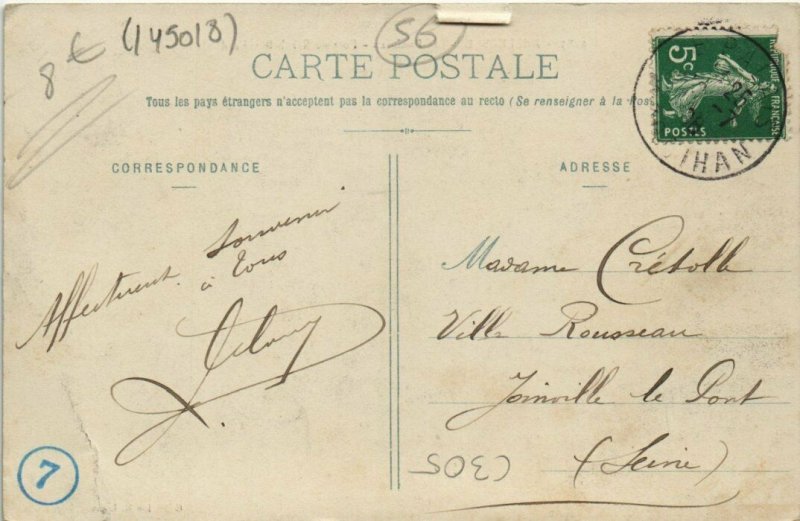 8 € (145018)
56
CARTE POSTALE
Tous les pays étrangers n'acceptent pas la correspondance au recto (Se renseigner à la Pos
CORRESPONDANCE
ADRESSE
5c
POSTES
FRANÇAISE
25
IHAN
Affectueux Souvenir
à tous
Madame Crétolle
Villa Rousseau
Joinville le Pont
(Seine)
C305
7